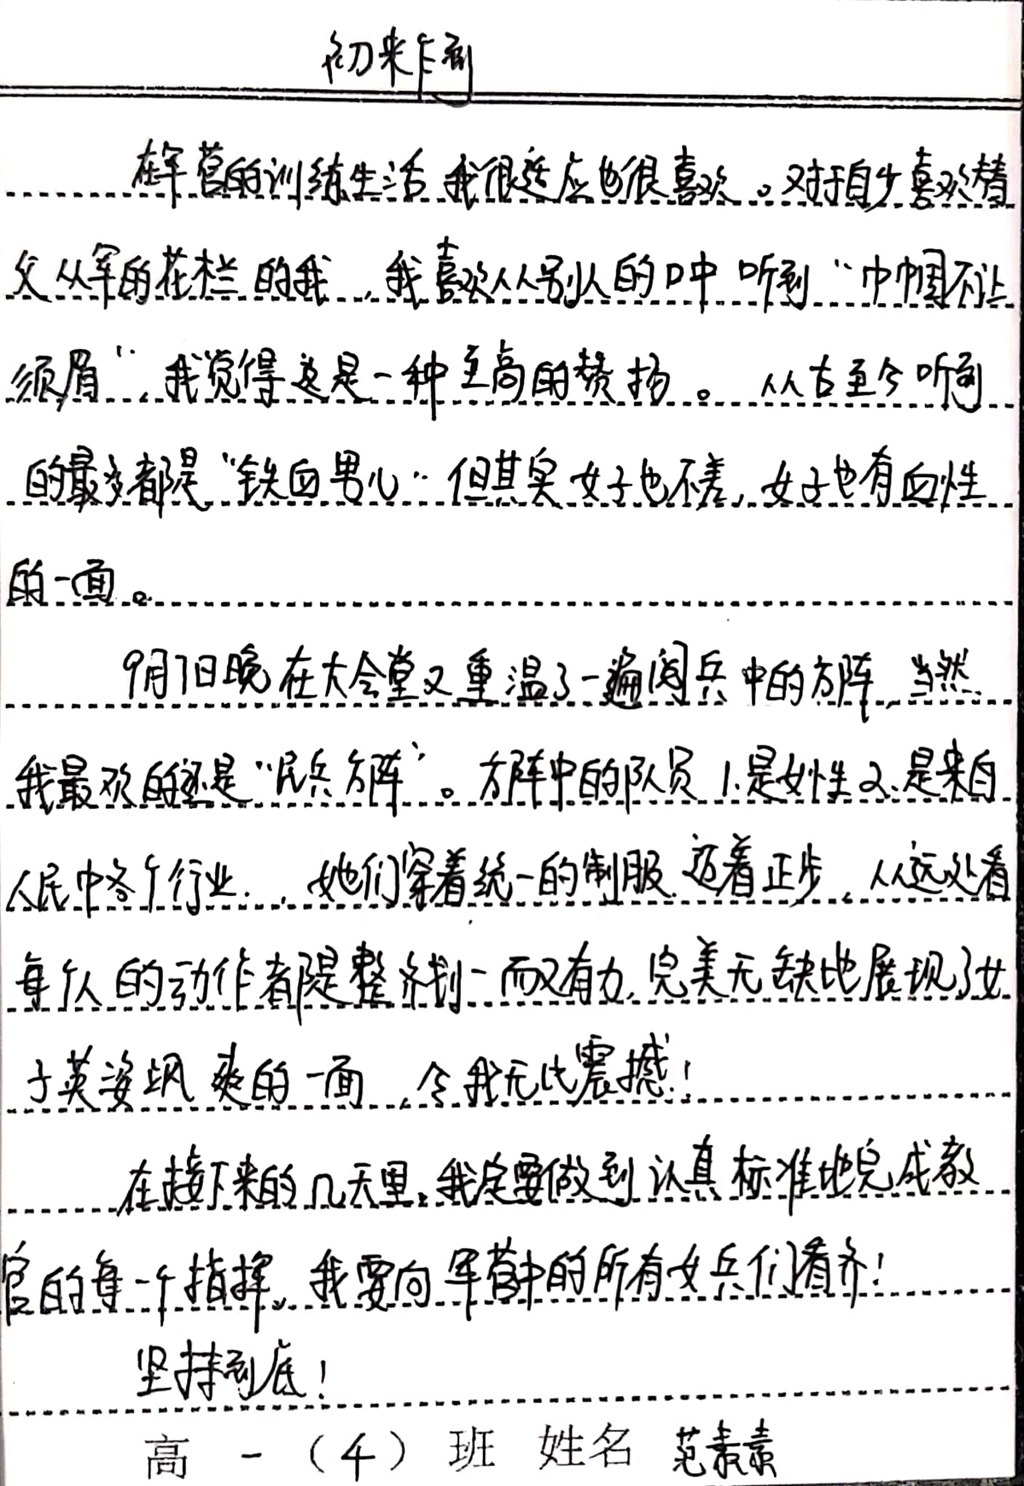 初来乍到
在军营的训练生活我很适应也很喜欢。对于自少喜欢替
父从军的花栏的我，我喜欢从别人的口中听到“巾帼不让
须眉”，我觉得这是一种至高的赞扬。从古至今听到
的最多都是“铁血男儿”但其实女子也不差，女子也有血性
的一面。
9月7日晚在大会堂又重温了一遍阅兵中的方阵，当然
我最欢的还是“民兵方阵”。方阵中的队员1.是女性2.是来自
人民中各个行业.，她们穿着统一的制服迈着正步，从远处看
每个人的动作都是整齐划一而又有力，完美无缺地展现了女
子英姿飒爽的一面，令我无比震撼！
在接下来的几天里，我定要做到认真标准地完成教
官的每一个指挥，我要向军营中的所有女兵们看齐！
坚持到底！
高一（4）班 姓名 范素素